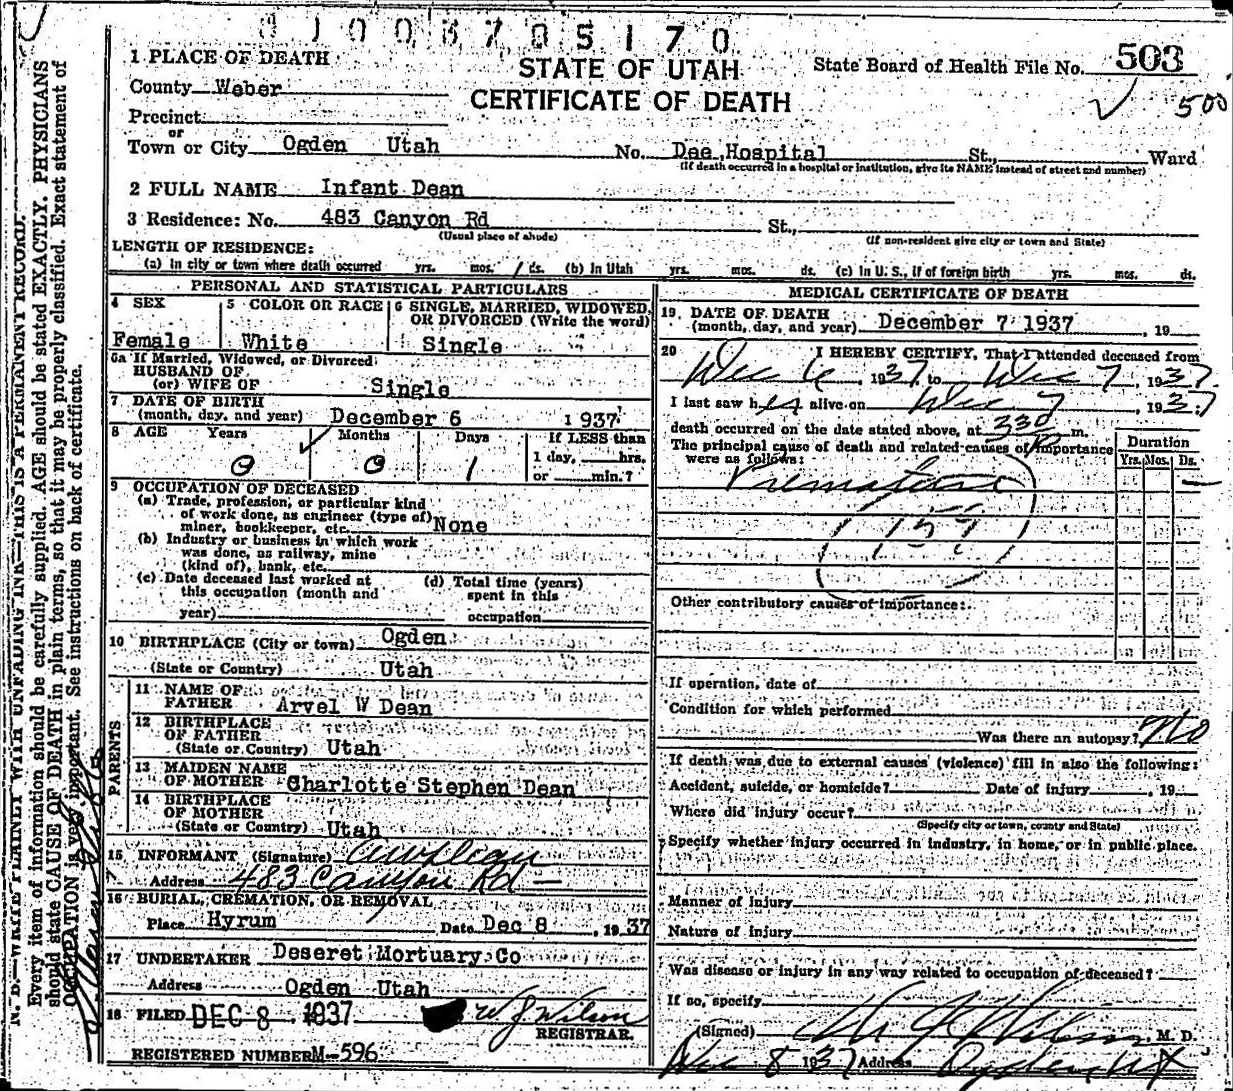 0100370 5170
1 PLACE OF DEATH
STATE OF UTAH
State Board of Health File No. 503
County Weber
CERTIFICATE OF DEATH
500
Precinct
or
Town or City Ogden Utah No. Dee Hospital St., Ward
(If death occurred in a hospital or institution, give its NAME instead of street and number)
2 FULL NAME Infant Dean
3 Residence: No. 483 Canyon Rd St.,
(Usual place of abode) (If non-resident give city or town and State)
LENGTH OF RESIDENCE:
(a) In city or town where death occurred yrs. mos. 1 ds. (b) In Utah yrs. mos. ds. (c) In U. S., if of foreign birth yrs. mos. ds.
PERSONAL AND STATISTICAL PARTICULARS
4 SEX 5 COLOR OR RACE 6 SINGLE, MARRIED, WIDOWED,
OR DIVORCED (Write the word)
Female White Single
6a If Married, Widowed, or Divorced
HUSBAND OF
(or) WIFE OF Single
7 DATE OF BIRTH
(month, day, and year) December 6 1937
8 AGE Years Months Days If LESS than
1 day, hrs.
0 0 1 or min.?
9 OCCUPATION OF DECEASED
(a) Trade, profession, or particular kind
of work done, as engineer (type of)
miner, bookkeeper, etc. None
(b) Industry or business in which work
was done, as railway, mine
(kind of), bank, etc.
(c) Date deceased last worked at (d) Total time (years)
this occupation (month and spent in this
year) occupation
10 BIRTHPLACE (City or town) Ogden
(State or Country) Utah
PARENTS
11 NAME OF
FATHER Arvel W Dean
12 BIRTHPLACE
OF FATHER
(State or Country) Utah
13 MAIDEN NAME
OF MOTHER Charlotte Stephen Dean
14 BIRTHPLACE
OF MOTHER
(State or Country) Utah
15 INFORMANT (Signature) AW Dean
Address 483 Canyon Rd —
16 BURIAL, CREMATION, OR REMOVAL
Place Hyrum Date Dec 8, 1937
17 UNDERTAKER Deseret Mortuary Co
Address Ogden Utah
18 FILED DEC 8 1937 W J Wilson
REGISTRAR.
REGISTERED NUMBER M-596
MEDICAL CERTIFICATE OF DEATH
19. DATE OF DEATH
(month, day, and year) December 7 1937, 19
20 I HEREBY CERTIFY, That I attended deceased from
Dec 6, 1937, to Dec 7, 1937.
I last saw her alive on Dec 7, 1937
death occurred on the date stated above, at 330 m.
The principal cause of death and related causes of importance
were as follows:
Duration
Yrs. Mos. Ds.
Premature —
159
Other contributory causes of importance:
If operation, date of
Condition for which performed
Was there an autopsy? No
If death was due to external causes (violence) fill in also the following:
Accident, suicide, or homicide? Date of injury, 19
Where did injury occur?
(Specify city or town, county and State)
Specify whether injury occurred in industry, in home, or in public place.
Manner of injury
Nature of injury
Was disease or injury in any way related to occupation of deceased?
If so, specify
(Signed) W J Wilson, M. D.
Dec 8 1937 Address Ogden, Ut
N. B.—WRITE PLAINLY WITH UNFADING INK—THIS IS A PERMANENT RECORD.
Every item of information should be carefully supplied. AGE should be stated EXACTLY. PHYSICIANS
should state CAUSE OF DEATH in plain terms, so that it may be properly classified. Exact statement of
OCCUPATION is very important. See instructions on back of certificate.